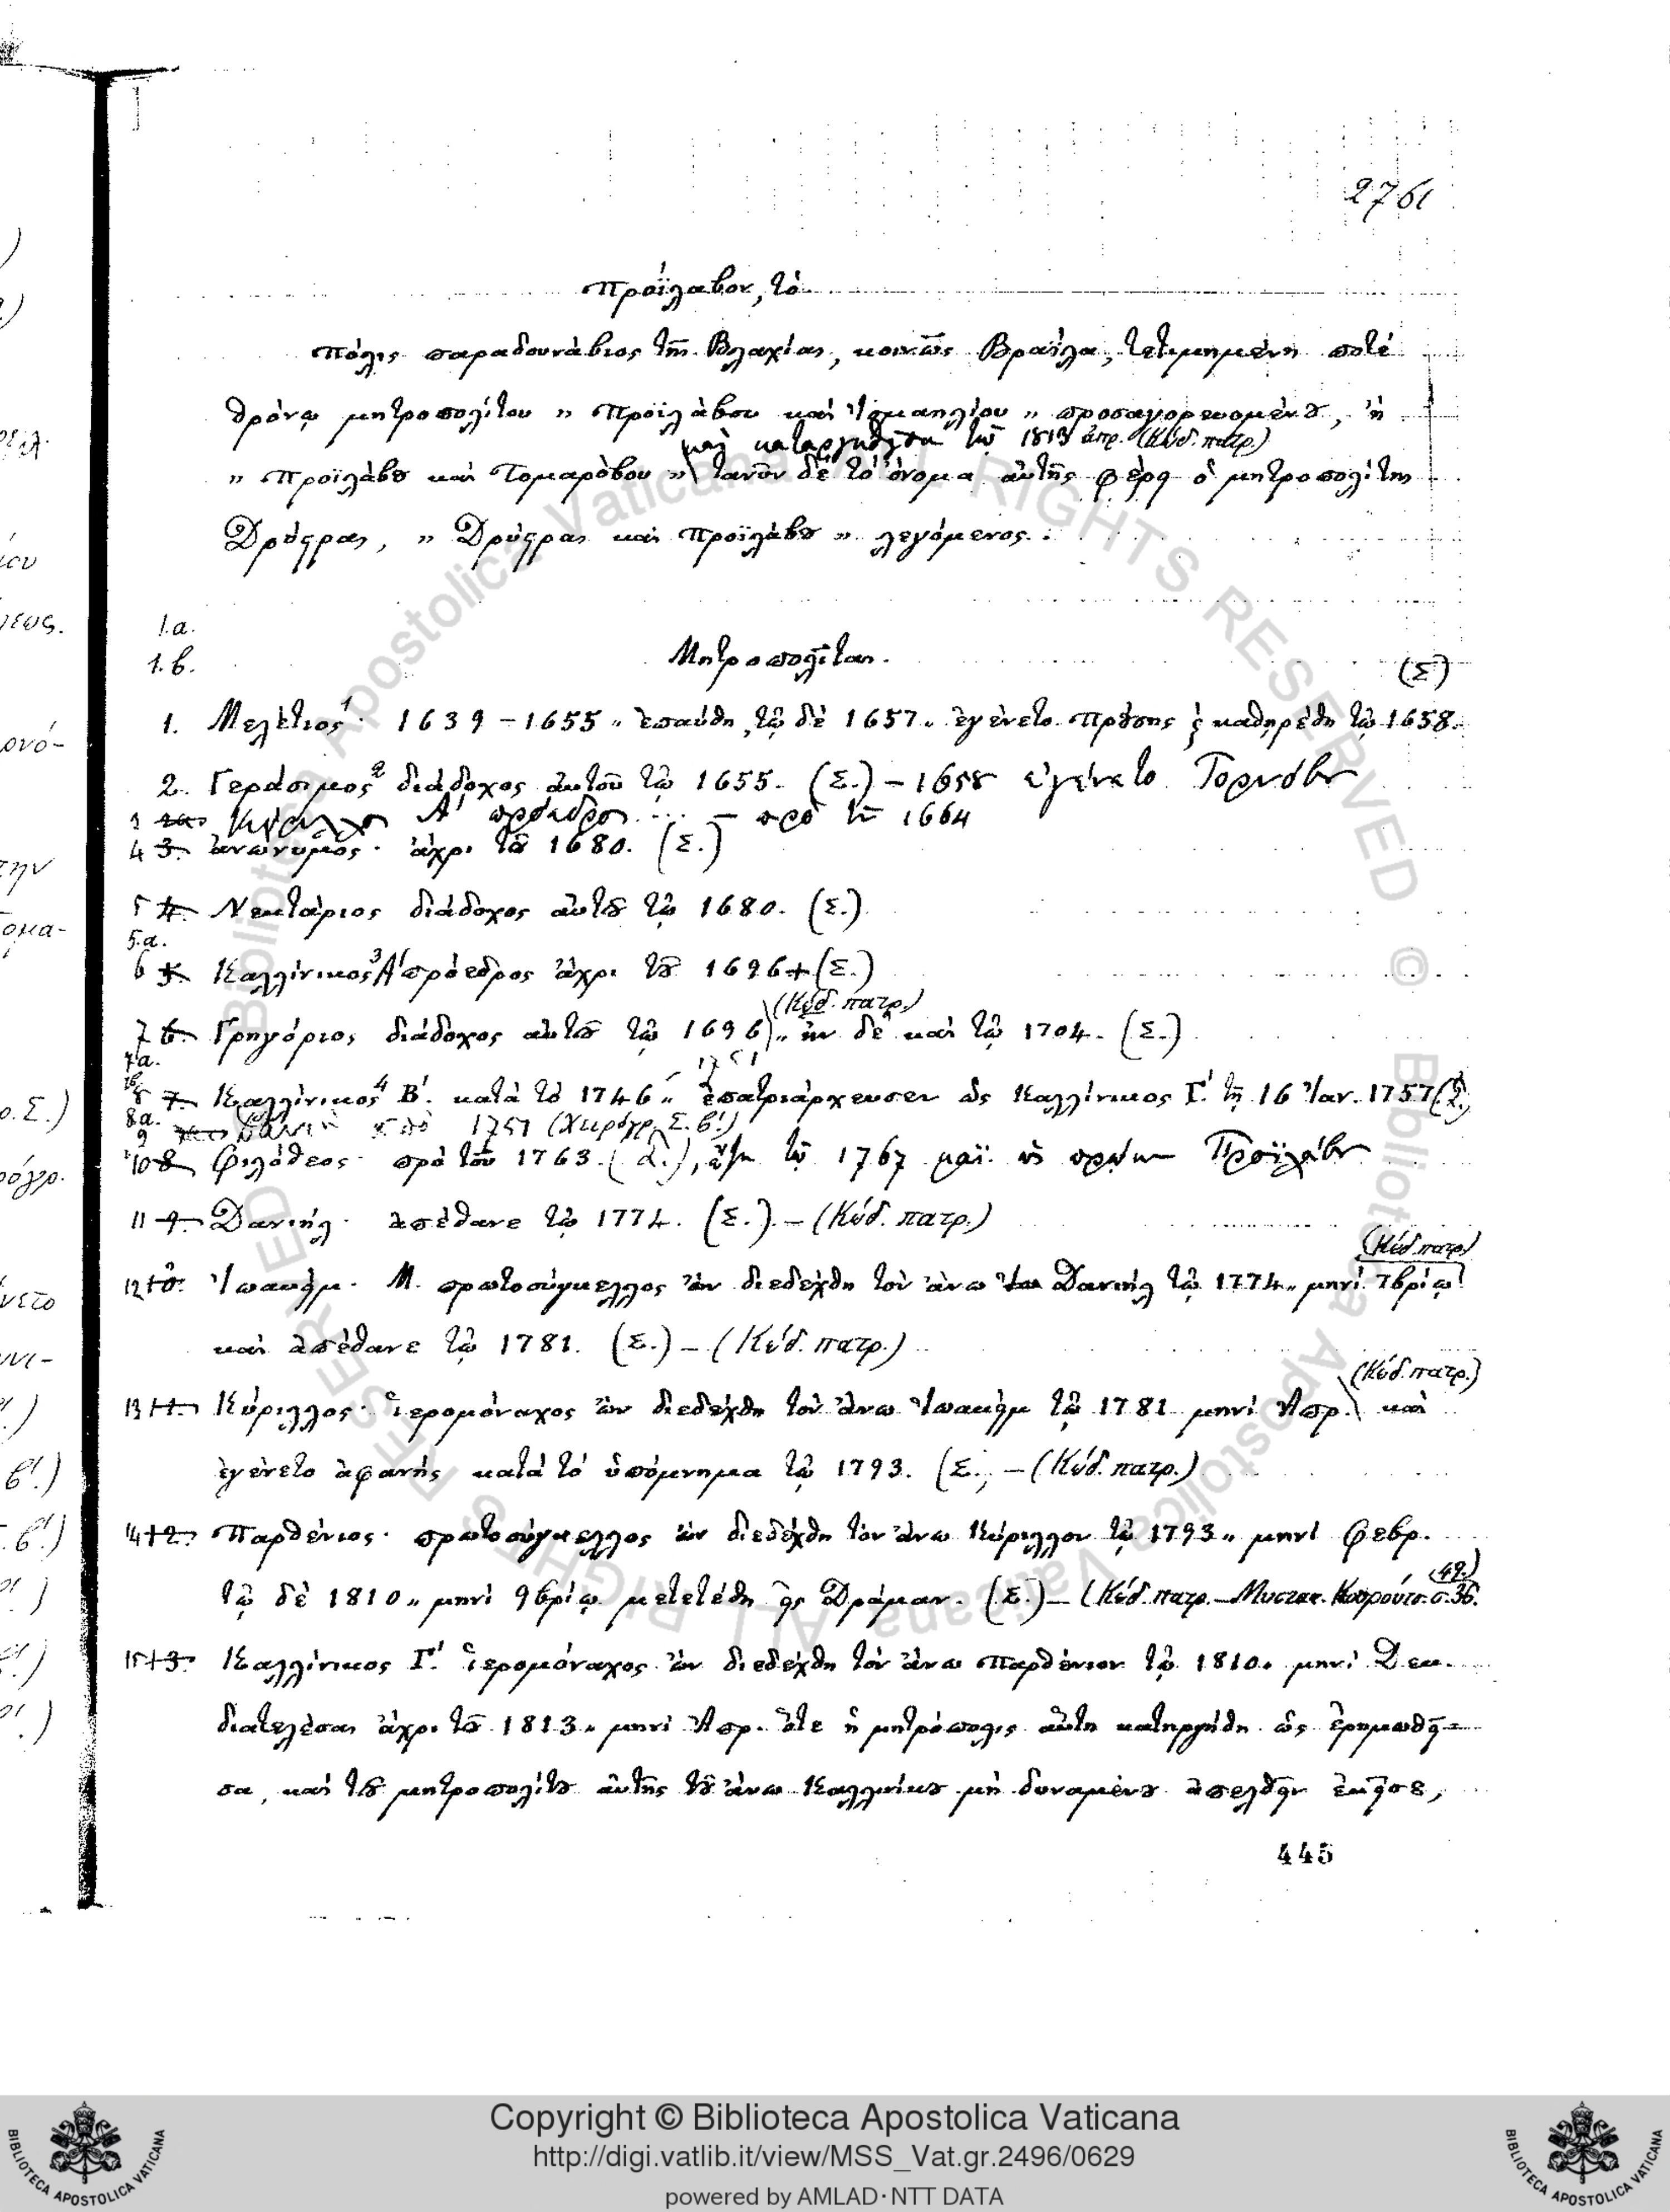 2761
Προΐλαβον, τό
Πόλις παραδουνάβιος τῆς Βλαχίας, κοινῶς Βραΐλα, τετιμημένη ποτέ
θρόνῳ μητροπολίτου „ Προϊλάβου καὶ Ἰσμαηλίου „ προσαγορευομένȣ, ἢ
καὶ καταργηθεῖσα τῷ 1813 ἀπρ. (Κώδ. πατρ.)
„ Προϊλάβȣ καὶ Τομαρόβου „ τανῦν δὲ τὸ ὄνομα αὐτῆς φέρει ὁ μητροπολίτης
Δρύστρας, „ Δρύστρας καὶ Προϊλάβȣ „ λεγόμενος.
1.α.
1.β.
Μητροπολῖται.
(Σ)
1. Μελέτιος¹· 1639-1655 „ ἐπαύθη, τῷ δὲ 1657 „ ἐγένετο Πρȣ́σης ϗ καθῃρέθη τῷ 1658.
2. Γεράσιμος² διάδοχος αὐτοῦ τῷ 1655. (Σ.) - 1658 ἐγένετο Τορνόβȣ
3 Α' πρόεδρος ... - πρὸ τȣ͂ 1664
4 3. ἀνώνυμος· ἄχρι τȣ͂ 1680. (Σ.)
5 4. Νεκτάριος διάδοχος αὐτȣ͂ τῷ 1680. (Σ.)
5.α.
6 5. Καλλίνικος³ Α' πρόεδρος ἄχρι τȣ͂ 1696+(Σ.)
(Κώδ. πατρ.)
7 6. Γρηγόριος διάδοχος αὐτȣ͂ τῷ 1696 „ ἦν δὲ καὶ τῷ 1704. (Σ.)
7α.
1751
8 7. Καλλίνικος⁴ Β'. κατὰ τὸ 1746 „ ἐπατριάρχευσεν ὡς Καλλίνικος Γ'. τῇ 16 Ἰαν. 1757 (Σ.)
8α.
9 Δανιὴλ ἀπὸ 1751 (Χειρόγρ. Σ. β'.)
10 8. Φιλόθεος· πρὸ τοῦ 1763. (Σ.), τῷ 1767 μαΐ. ὡς πρώην Προϊλάβȣ
11 9. Δανιήλ· ἀπέθανε τῷ 1774. (Σ.) - (Κώδ. πατρ.)
(Κώδ. πατρ.)
12 10. Ἰωακείμ· Μ. πρωτοσύγκελλος ὢν διεδέχθη τὸν ἄνω Δανιήλ τῷ 1774 „ μηνὶ 7βρίῳ
καὶ ἀπέθανε τῷ 1781. (Σ.) - (Κώδ. πατρ.)
(Κώδ. πατρ.)
13 11. Κύριλλος· ἱερομόναχος ὢν διεδέχθη τὸν ἄνω Ἰωακεὶμ τῷ 1781 μηνὶ Ἀπρ. καὶ
ἐγένετο ἀφανής κατὰ τὸ ὑπόμνημα τῷ 1793. (Σ.) - (Κώδ. πατρ.)
14 12. Παρθένιος· πρωτοσύγκελλος ὢν διεδέχθη τὸν ἄνω Κύριλλον τῷ 1793 „ μηνὶ Φεβρ.
49.)
τῷ δὲ 1810 „ μηνὶ 9βρίῳ μετετέθη εἰς Δράμαν. (Σ.) - (Κώδ. πατρ. - Μυστακ. Κουρούτσ. σ. 36.
15 13. Καλλίνικος Γ'. ἱερομόναχος ὢν διεδέχθη τὸν ἄνω Παρθένιον τῷ 1810. μηνὶ Δεκ.
διατελέσας ἄχρι τȣ͂ 1813 „ μηνὶ Ἀπρ. ὅτε ἡ μητρόπολις αὕτη κατηργήθη ὡς ἐρημωθεῖ=
σα, καὶ τȣ͂ μητροπολίτȣ αὐτῆς τȣ͂ ἄνω Καλλινίκȣ μὴ δυναμένȣ ἀπελθεῖν ἐκεῖσε,
445
Copyright © Biblioteca Apostolica Vaticana
http://digi.vatlib.it/view/MSS_Vat.gr.2496/0629
powered by AMLAD·NTT DATA